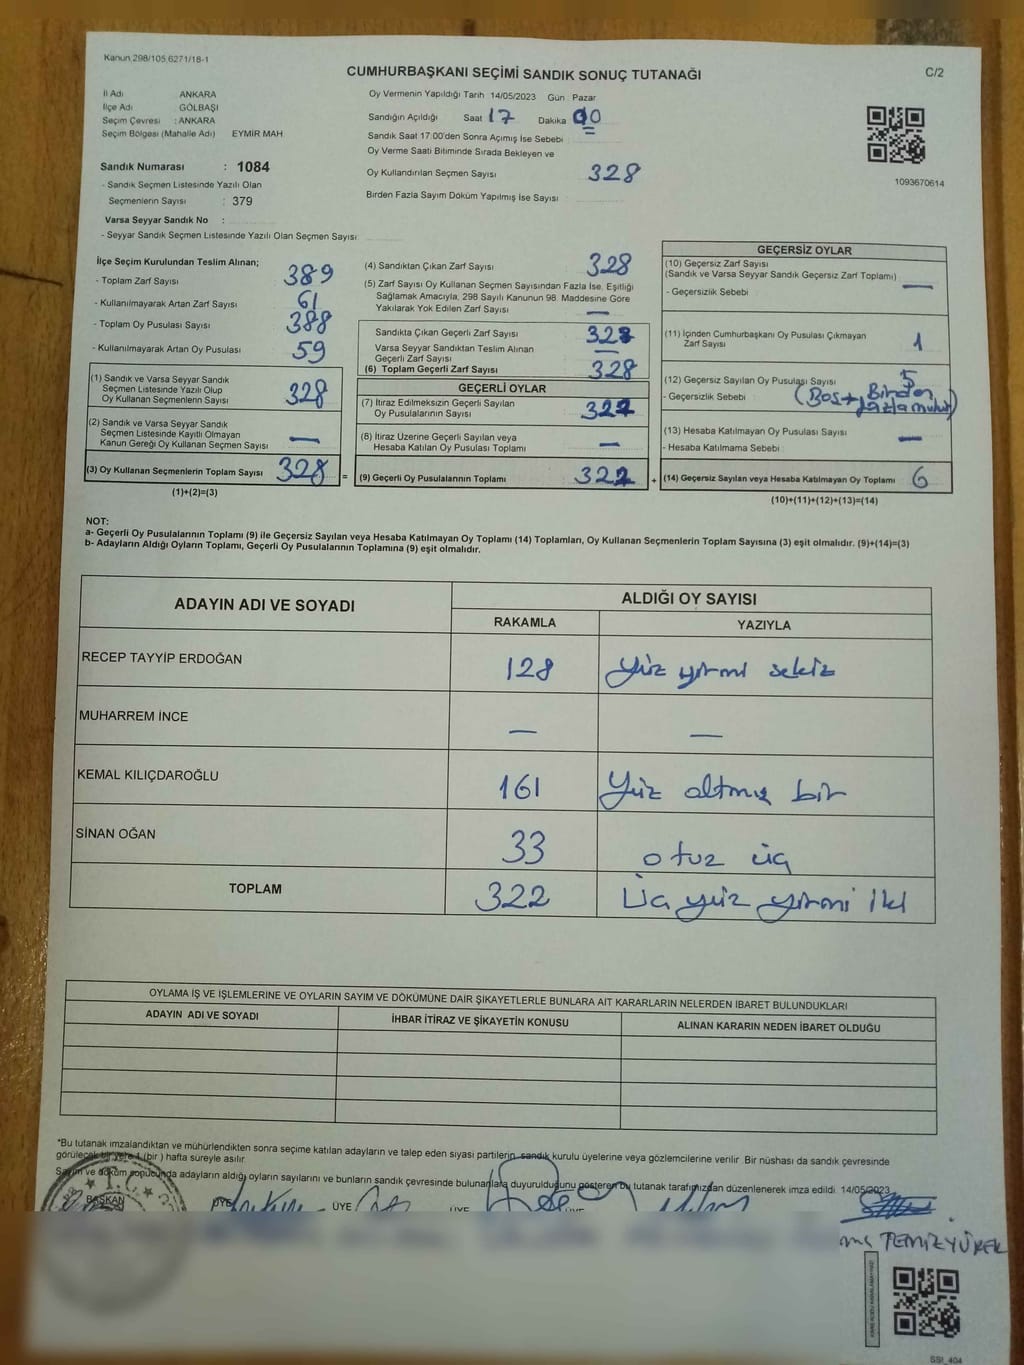 Kanun 298/105,6271/18-1
CUMHURBAŞKANI SEÇİMİ SANDIK SONUÇ TUTANAĞI
C/2
İl Adı ANKARA
İlçe Adı GÖLBAŞI
Seçim Çevresi : ANKARA
Seçim Bölgesi (Mahalle Adı) EYMİR MAH.
Sandık Numarası : 1084
- Sandık Seçmen Listesinde Yazılı Olan
Seçmenlerin Sayısı : 379
Varsa Seyyar Sandık No :
- Seyyar Sandık Seçmen Listesinde Yazılı Olan Seçmen Sayısı
Oy Vermenin Yapıldığı Tarih 14/05/2023 Gün : Pazar
Sandığın Açıldığı Saat 17 Dakika 00
Sandık Saat 17:00'den Sonra Açımış İse Sebebi
Oy Verme Saati Bitiminde Sırada Bekleyen ve
Oy Kullandırılan Seçmen Sayısı 328
Birden Fazla Sayım Döküm Yapılmış İse Sayısı
1093670614
İlçe Seçim Kurulundan Teslim Alınan;
- Toplam Zarf Sayısı 389
- Kullanılmayarak Artan Zarf Sayısı 61
- Toplam Oy Pusulası Sayısı 388
- Kullanılmayarak Artan Oy Pusulası 59
(1) Sandık ve Varsa Seyyar Sandık
Seçmen Listesinde Yazılı Olup
Oy Kullanan Seçmenlerin Sayısı 328
(2) Sandık ve Varsa Seyyar Sandık
Seçmen Listesinde Kayıtlı Olmayan
Kanun Gereği Oy Kullanan Seçmen Sayısı —
(3) Oy Kullanan Seçmenlerin Toplam Sayısı 328 =
(1)+(2)=(3)
(4) Sandıktan Çıkan Zarf Sayısı 328
(5) Zarf Sayısı Oy Kullanan Seçmen Sayısından Fazla İse, Eşitliği
Sağlamak Amacıyla, 298 Sayılı Kanunun 98. Maddesine Göre
Yakılarak Yok Edilen Zarf Sayısı —
Sandıkta Çıkan Geçerli Zarf Sayısı 328
Varsa Seyyar Sandıktan Teslim Alınan
Geçerli Zarf Sayısı —
(6) Toplam Geçerli Zarf Sayısı 328
GEÇERLİ OYLAR
(7) İtiraz Edilmeksizin Geçerli Sayılan
Oy Pusulalarının Sayısı 322
(8) İtiraz Üzerine Geçerli Sayılan veya
Hesaba Katılan Oy Pusulası Toplamı —
(9) Geçerli Oy Pusulalarının Toplamı 322 +
GEÇERSİZ OYLAR
(10) Geçersiz Zarf Sayısı
(Sandık ve Varsa Seyyar Sandık Geçersiz Zarf Toplamı) —
- Geçersizlik Sebebi
(11) İçinden Cumhurbaşkanı Oy Pusulası Çıkmayan
Zarf Sayısı 1
(12) Geçersiz Sayılan Oy Pusulası Sayısı 5
- Geçersizlik Sebebi (Boş + Birden
fazla mühür)
(13) Hesaba Katılmayan Oy Pusulası Sayısı —
- Hesaba Katılmama Sebebi
(14) Geçersiz Sayılan veya Hesaba Katılmayan Oy Toplamı 6
(10)+(11)+(12)+(13)=(14)
NOT:
a- Geçerli Oy Pusulalarının Toplamı (9) ile Geçersiz Sayılan veya Hesaba Katılmayan Oy Toplamı (14) Toplamları, Oy Kullanan Seçmenlerin Toplam Sayısına (3) eşit olmalıdır. (9)+(14)=(3)
b- Adayların Aldığı Oyların Toplamı, Geçerli Oy Pusulalarının Toplamına (9) eşit olmalıdır.
ADAYIN ADI VE SOYADI
ALDIĞI OY SAYISI
RAKAMLA YAZIYLA
RECEP TAYYİP ERDOĞAN 128 Yüz yirmi sekiz
MUHARREM İNCE — —
KEMAL KILIÇDAROĞLU 161 Yüz altmış bir
SİNAN OĞAN 33 otuz üç
TOPLAM 322 Üç yüz yirmi iki
OYLAMA İŞ VE İŞLEMLERİNE VE OYLARIN SAYIM VE DÖKÜMÜNE DAİR ŞİKAYETLERLE BUNLARA AİT KARARLARIN NELERDEN İBARET BULUNDUKLARI
ADAYIN ADI VE SOYADI İHBAR İTİRAZ VE ŞİKAYETİN KONUSU ALINAN KARARIN NEDEN İBARET OLDUĞU
*Bu tutanak imzalandıktan ve mühürlendikten sonra seçime katılan adayların ve talep eden siyasi partilerin, sandık kurulu üyelerine veya gözlemcilerine verilir. Bir nüshası da sandık çevresinde
görülecek bir yere 1 (bir) hafta süreyle asılır.
Sayım ve döküm sonucunda adayların aldığı oyların sayılarını ve bunların sandık çevresinde bulunanlara duyurulduğunu gösteren bu tutanak tarafımızdan düzenlenerek imza edildi. 14/05/2023
BAŞKAN ÜYE ÜYE ÜYE ÜYE
TEMİZYÜREK
T.C.
SSI_404